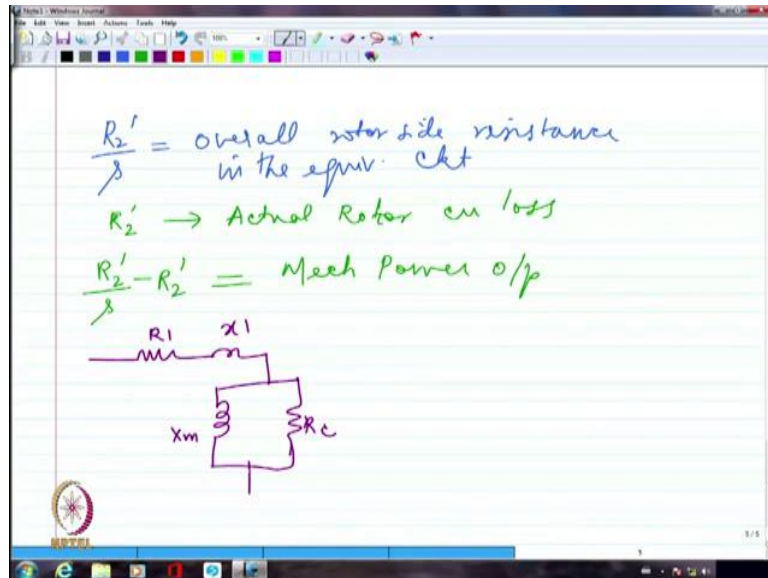 Note1 - Windows Journal
File Edit View Insert Actions Tools Help
100%
B I
R2'/s = overall rotor side resistance
in the equiv. ckt
R2' → Actual Rotor cu loss
R2'/s - R2' = Mech Power o/p
R1 x1
Xm Rc
NPTEL
5/5
5